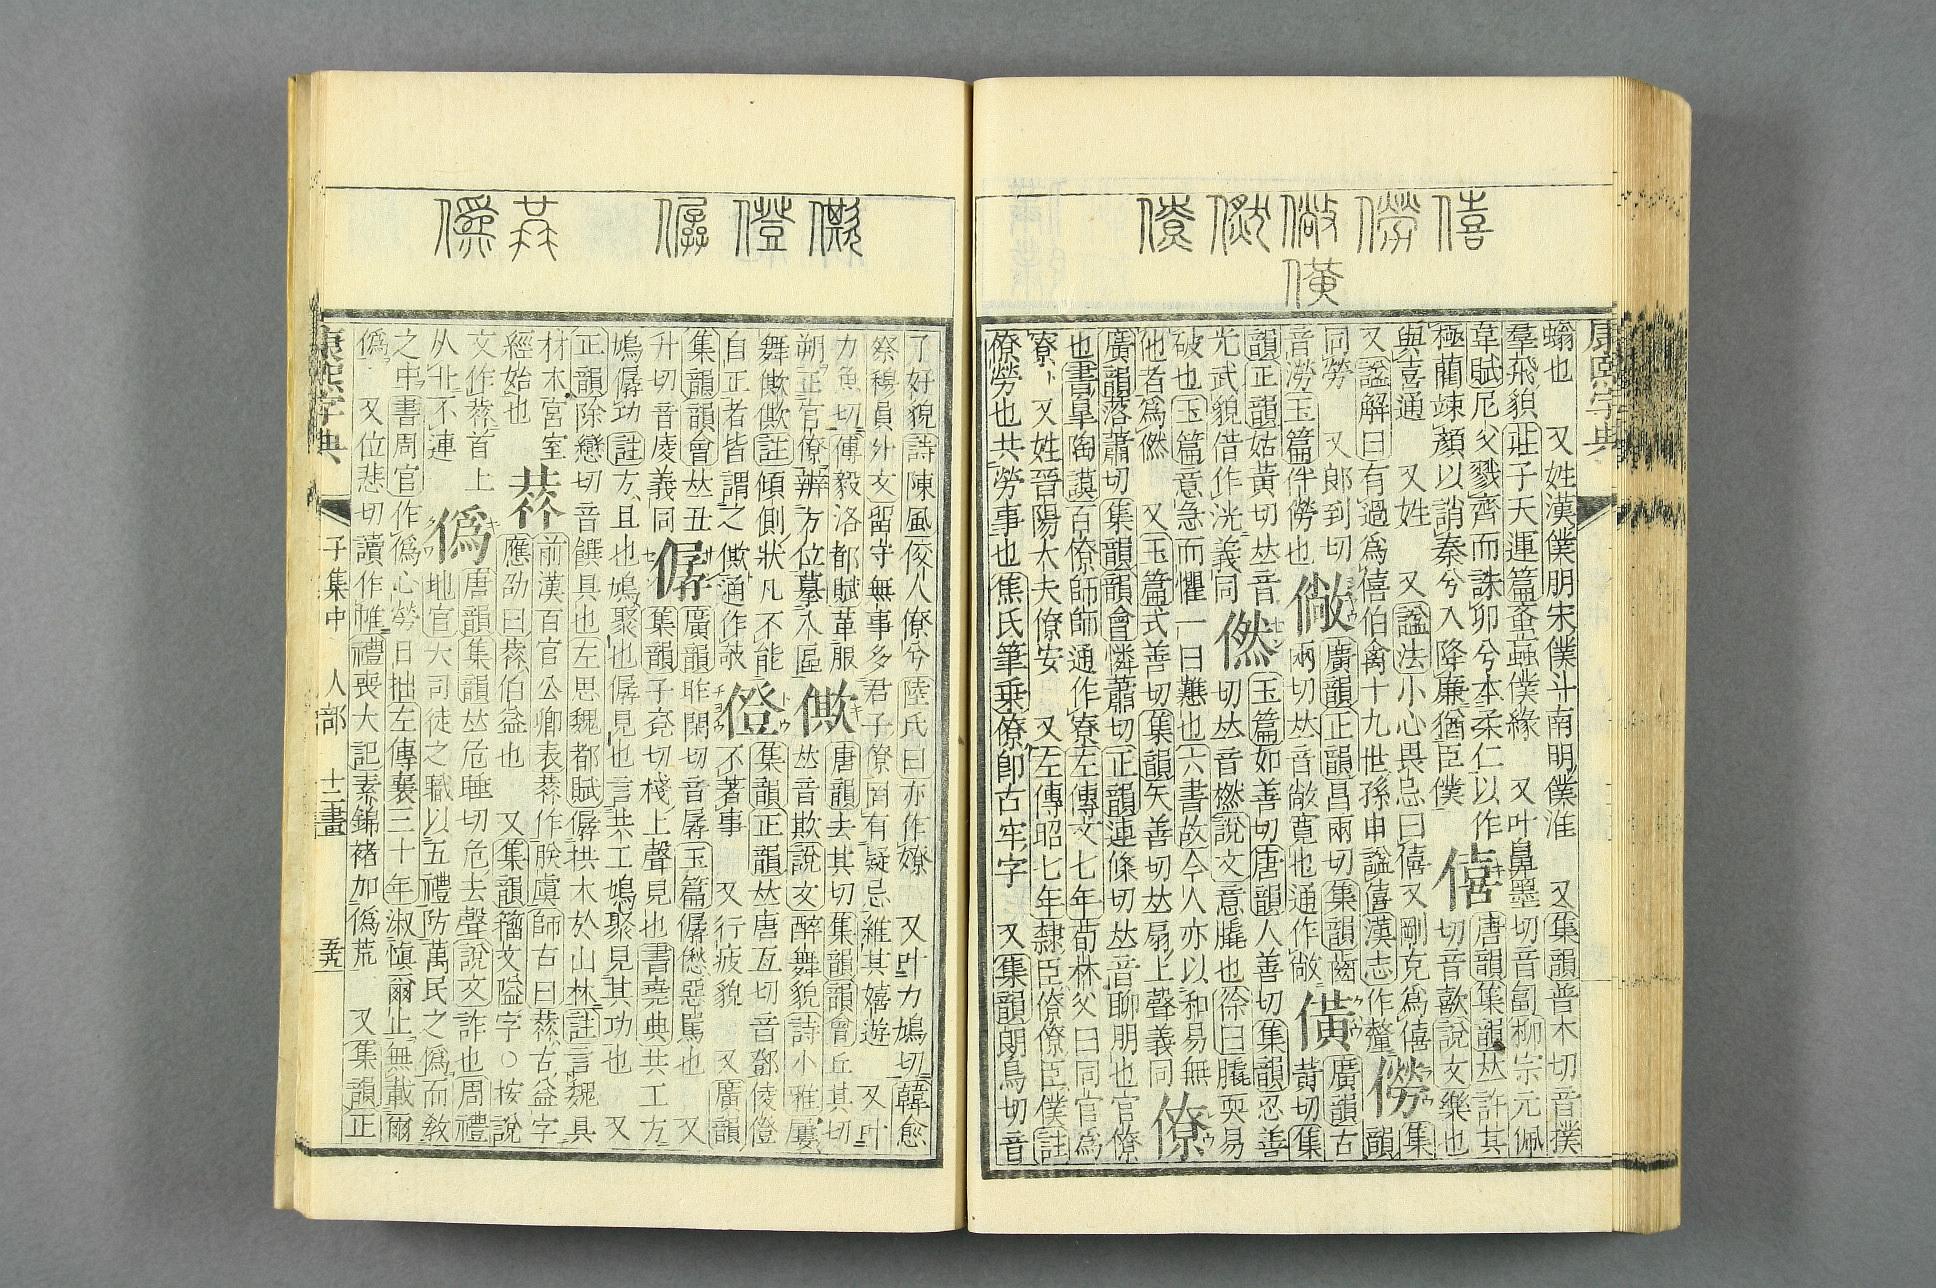 僖 僗 僘 僋 僚
僙
蝻也 又姓漢僕朋宋僕斗南明僕淮 又集韻普木切音撲
羣飛貌莊子天運篇蚤蝱僕緣 又叶鼻墨切音匐柳宗元佩
韋賦尼父戮齊而誅卯兮本柔仁以作
極藺竦顏以誚秦兮入降廉猶臣僕
僖
唐韻集韻𠀤許其
切音歖說文樂也
與喜通 又姓 又諡法小心畏忌曰僖又剛克爲僖
又諡解曰有過爲僖伯禽十九世孫由諡僖漢志作釐
僗
集
韻
同勞 又郞到切
音澇玉篇伴僗也
僘
廣韻正韻昌兩切集韻齒
兩切𠀤音敞寬也通作敞
僙
廣韻古
黃切集
韻正韻姑黃切𠀤音
光武貌借作洸義同
僐
玉篇如善切唐韻人善切集韻忍善
切𠀤音橪說文意膬也徐曰膬耎易
破也玉篇意急而懼一曰難也六書故今人亦以和易無
他者爲僐 又玉篇式善切集韻矢善切𠀤扇上聲義同
僚
廣韻落蕭切集韻韻會憐蕭切正韻連條切𠀤音聊朋也官僚
也書臯陶謨百僚師師通作寮左傳文七年荀林父曰同官爲
寮 又姓晉陽大夫僚安 又左傳昭七年隸臣僚僚臣僕註
僚勞也共勞事也焦氏筆乗僚卽古牢字 又集韻朗鳥切音
康熙字典
了好貌詩陳風佼人僚兮陸氏曰亦作嫽 又叶力鳩切韓愈
祭穆員外文留守無事多君子僚罔有疑忌維其嬉遊 又叶
力魚切傅毅洛都賦革服
朔正官僚辨方位摹八區
僛
唐韻去其切集韻韻會丘其切
𠀤音欺說文醉舞貌詩小雅屢
舞僛僛註傾側狀凡不能
自正者皆謂之僛通作䫏
僜
集韻正韻𠀤唐亙切音鄧倰僜
不著事 又行疲貌 又廣韻
集韻韻會𠀤丑
升切音庱義同
僝
廣韻昨閑切音孱玉篇僝僽惡駡也 又
集韻子兖切棧上聲見也書堯典共工方
鳩僝功註方且也鳩聚也僝見也言共工鳩聚見其功也 又
正韻除戀切音饌具也左思魏都賦僝拱木於山林註言魏具
材木宮室
經始也
前漢百官公卿表𦯶作朕虞師古曰𦯶古益字
應劭曰𦯶伯益也 又集韻籀文嗌字○按說
文作𦯶首上
从丱不連
僞
唐韻集韻𠀤危睡切危去聲說文詐也周禮
地官大司徒之職以五禮防萬民之僞而敎
之中書周官作僞心勞日拙左傳襄三十年淑愼爾止無載爾
僞 又位悲切讀作帷禮喪大記素錦褚加僞荒 又集韻正
康熙字典
子集中 人部 十二畫